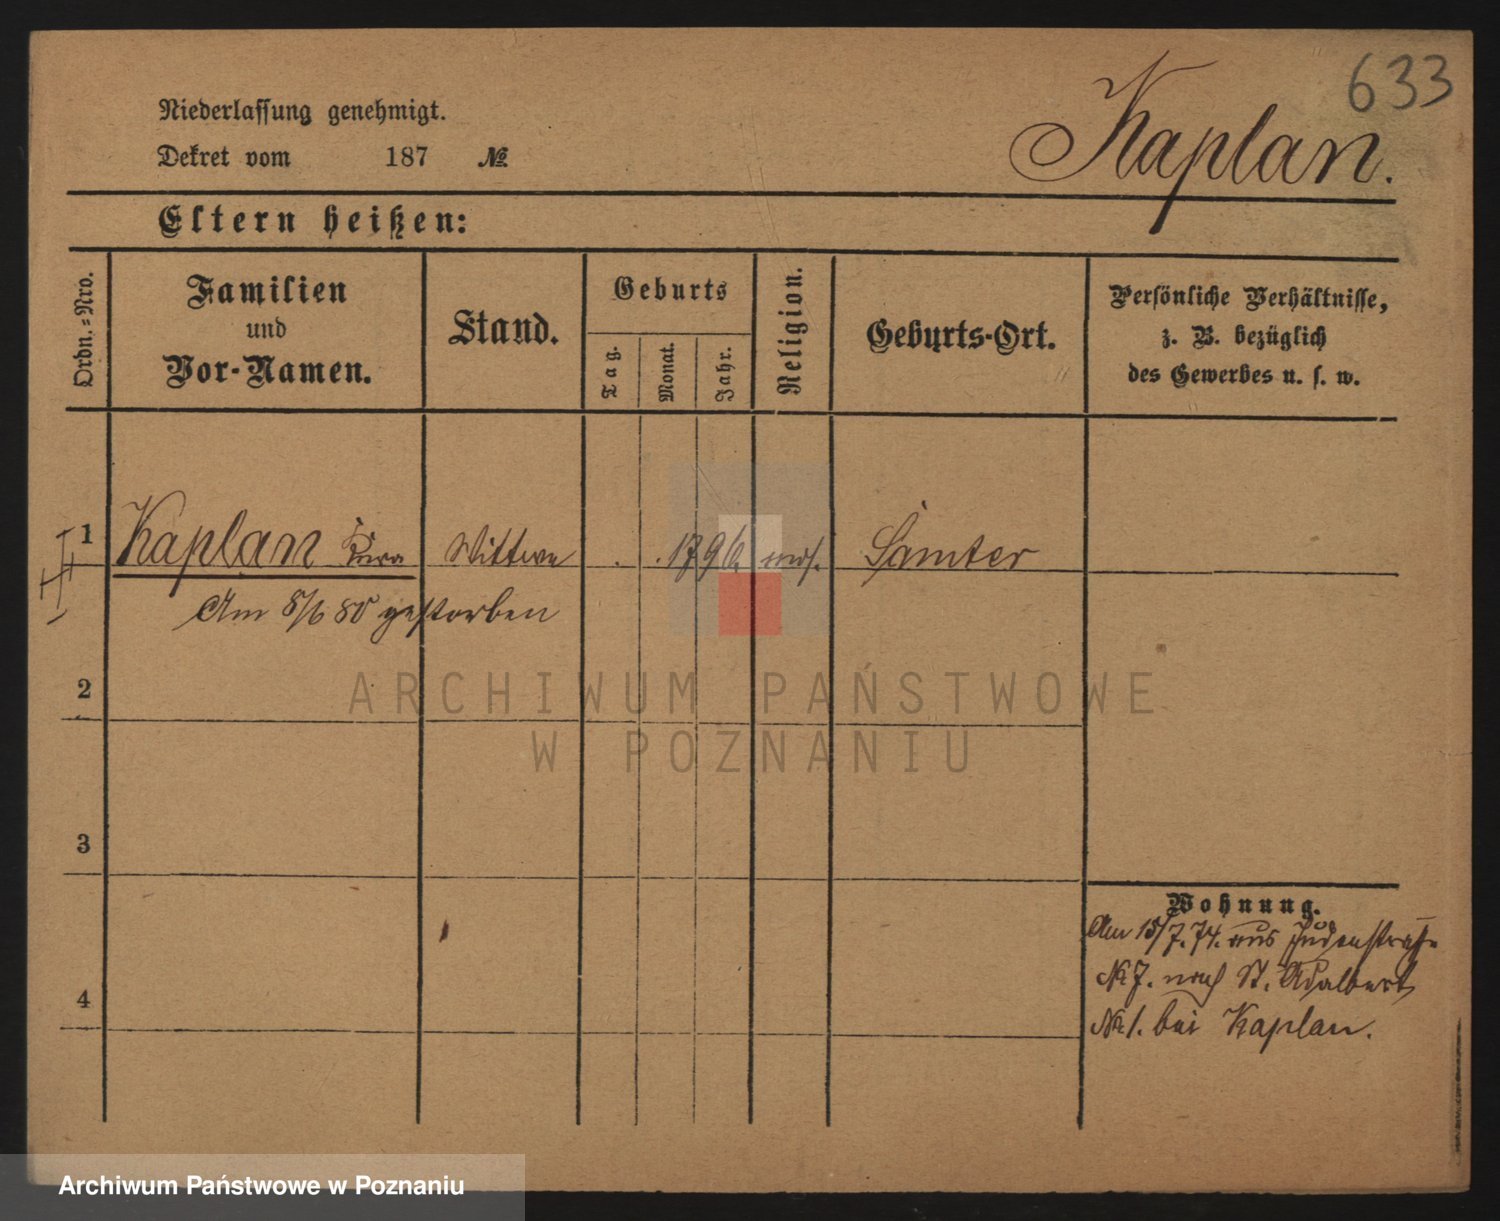 633
Kaplan.
Niederlassung genehmigt.
Dekret vom 187 №
Eltern heißen:
Ordn.=Nro.
Familien und Vor-Namen.
Stand.
Geburts
Tag.
Monat.
Jahr.
Religion.
Geburts-Ort.
Persönliche Verhältnisse,
z. B. bezüglich
des Gewerbes u. s. w.
1 Kaplan Wittwe 1796 mos. Samter
Am 5/6 80 gestorben
2
3
4
Wohnung.
Am 15/7. 74. aus Judenstraße
№ 7. nach St. Adalbert
№ 1. bei Kaplan.
ARCHIWUM PAŃSTWOWE
W POZNANIU
Archiwum Państwowe w Poznaniu